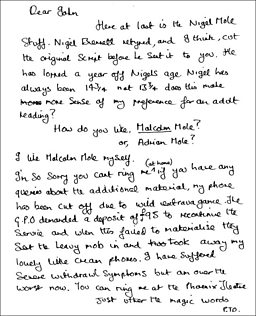 Dear John
Here at last is the Nigel Mole
Stuff. Nigel Bennett retyped, and I think, cut
the original Script before he Sent it to you. He
has lopped a year off Nigels age. Nigel has
always been 14¾ not 13¾ does this make
more Sense of my preference for an adult
reading?
How do you like, Malcolm Mole?
or, Adrian Mole?
I like Malcolm Mole myself.
(at home)
I'm So Sorry you cant ring me if you have any
queries about the additional material, my phone
has been cut off due to wild extravagance. The
G.P.O demanded a deposit of £95 to recontinue the
Service and when this failed to materialise they
Sent the heavy mob in and took away my
lovely little cream phones. I have Suffered
Severe withdrawl Symptoms but am over the
worst now. You can ring me at the Phoenix Theatre
Just utter the magic words
P.T.O.